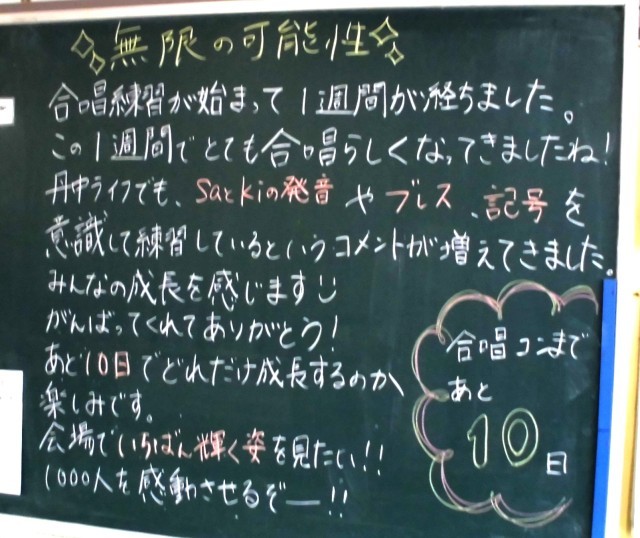 無限の可能性
合唱練習が始まって1週間が経ちました。
この1週間でとても合唱らしくなってきましたね!
丹中ライフでも、saとkiの発音やブレス、記号を
意識して練習しているというコメントが増えてきました。
みんなの成長を感じます
がんばってくれてありがとう!
あと10日でどれだけ成長するのか、
楽しみです。
会場でいちばん輝く姿を見たい!!
1000人を感動させるぞー!!
合唱コンまで
あと
10日